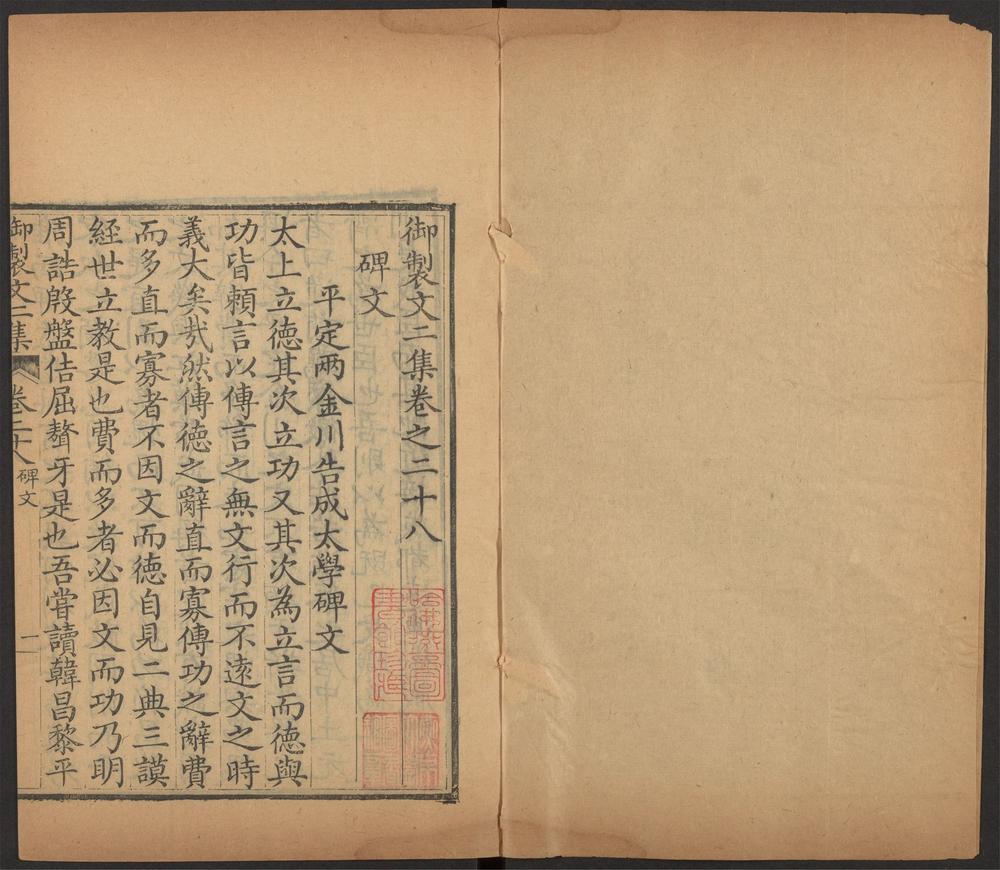 御製文二集卷之二十八
碑文
平定兩金川告成太學碑文
太上立德其次立功又其次為立言而德與
功皆賴言以傳言之無文行而不遠文之時
義大矣哉然傳德之辭直而寡傳功之辭費
而多直而寡者不因文而德自見二典三謨
經世立教是也費而多者必因文而功乃明
周誥殷盤佶屈聱牙是也吾嘗讀韓昌黎平
御製文二集 卷二十八 碑文 一